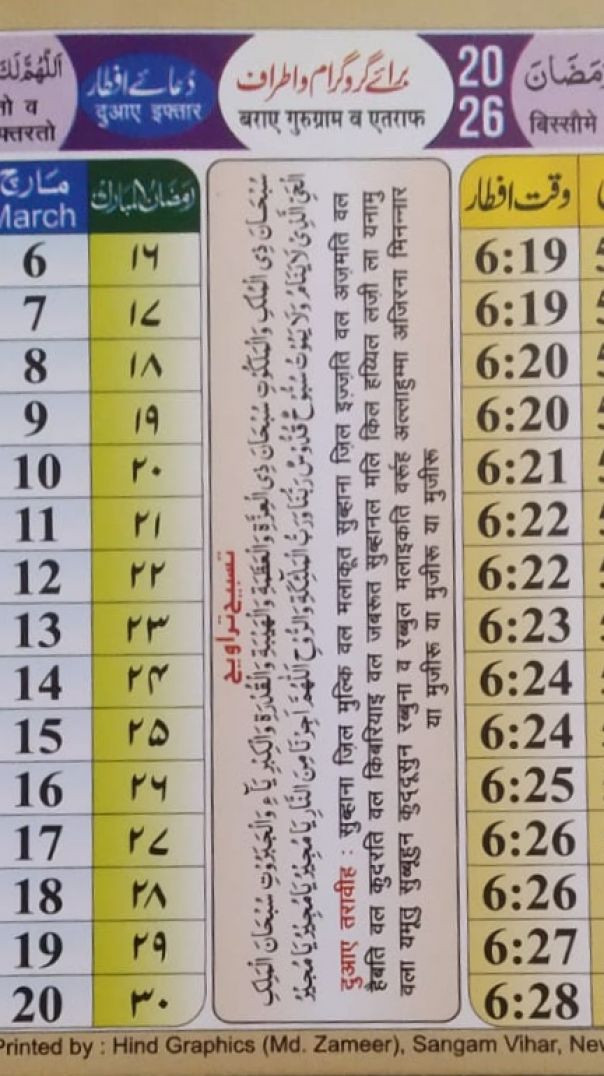 اَللّٰهُمَّ لَكَ
तो व
फ्तरतो
دُعائے افطار
दुआए इफ्तार
برائے گروگرام و اطراف
बराए गुरुग्राम व एतराफ
20
26
رَمَضَانَ
बिस्सौमे
مارچ
March
رمضان المبارک
وقت افطار
6 ۱۶ 6:19
7 ۱۷ 6:19
8 ۱۸ 6:20
9 ۱۹ 6:20
10 ۲۰ 6:21
11 ۲۱ 6:22
12 ۲۲ 6:22
13 ۲۳ 6:23
14 ۲۴ 6:24
15 ۲۵ 6:24
16 ۲۶ 6:25
17 ۲۷ 6:26
18 ۲۸ 6:26
19 ۲۹ 6:27
20 ۳۰ 6:28
تسبیح تراویح
سُبْحَانَ ذِی الْمُلْكِ وَالْمَلَكُوْتِ سُبْحَانَ ذِی الْعِزَّةِ وَالْعَظَمَةِ وَالْهَيْبَةِ وَالْقُدْرَةِ وَالْكِبْرِيَآءِ وَالْجَبَرُوْتِ سُبْحَانَ الْمَلِكِ
الْحَیِّ الَّذِیْ لَا يَنَامُ وَلَا يَمُوْتُ سُبُّوْحٌ قُدُّوْسٌ رَبُّنَا وَرَبُّ الْمَلٰٓئِكَةِ وَالرُّوْحِ اَللّٰهُمَّ اَجِرْنَا مِنَ النَّارِ يَا مُجِيْرُ يَا مُجِيْرُ يَا مُجِيْرُ
दुआए तरावीह : सुब्हाना ज़िल मुल्कि वल मलाकूत सुब्हाना ज़िल इज़्ज़ति वल अज़मति वल
हैबति वल कुदरति वल किबरियाइ वल जबरूत सुब्हानल मलि किल हय्यिल लज़ी ला यनामु
वला यमूतु सुब्बूहुन कुददूसुन रब्बुना व रब्बुल मलाइकति वर्रूह अल्लाहुम्मा अजिरना मिनन्नार
या मुजीरू या मुजीरू या मुजीरू
Printed by : Hind Graphics (Md. Zameer), Sangam Vihar, New